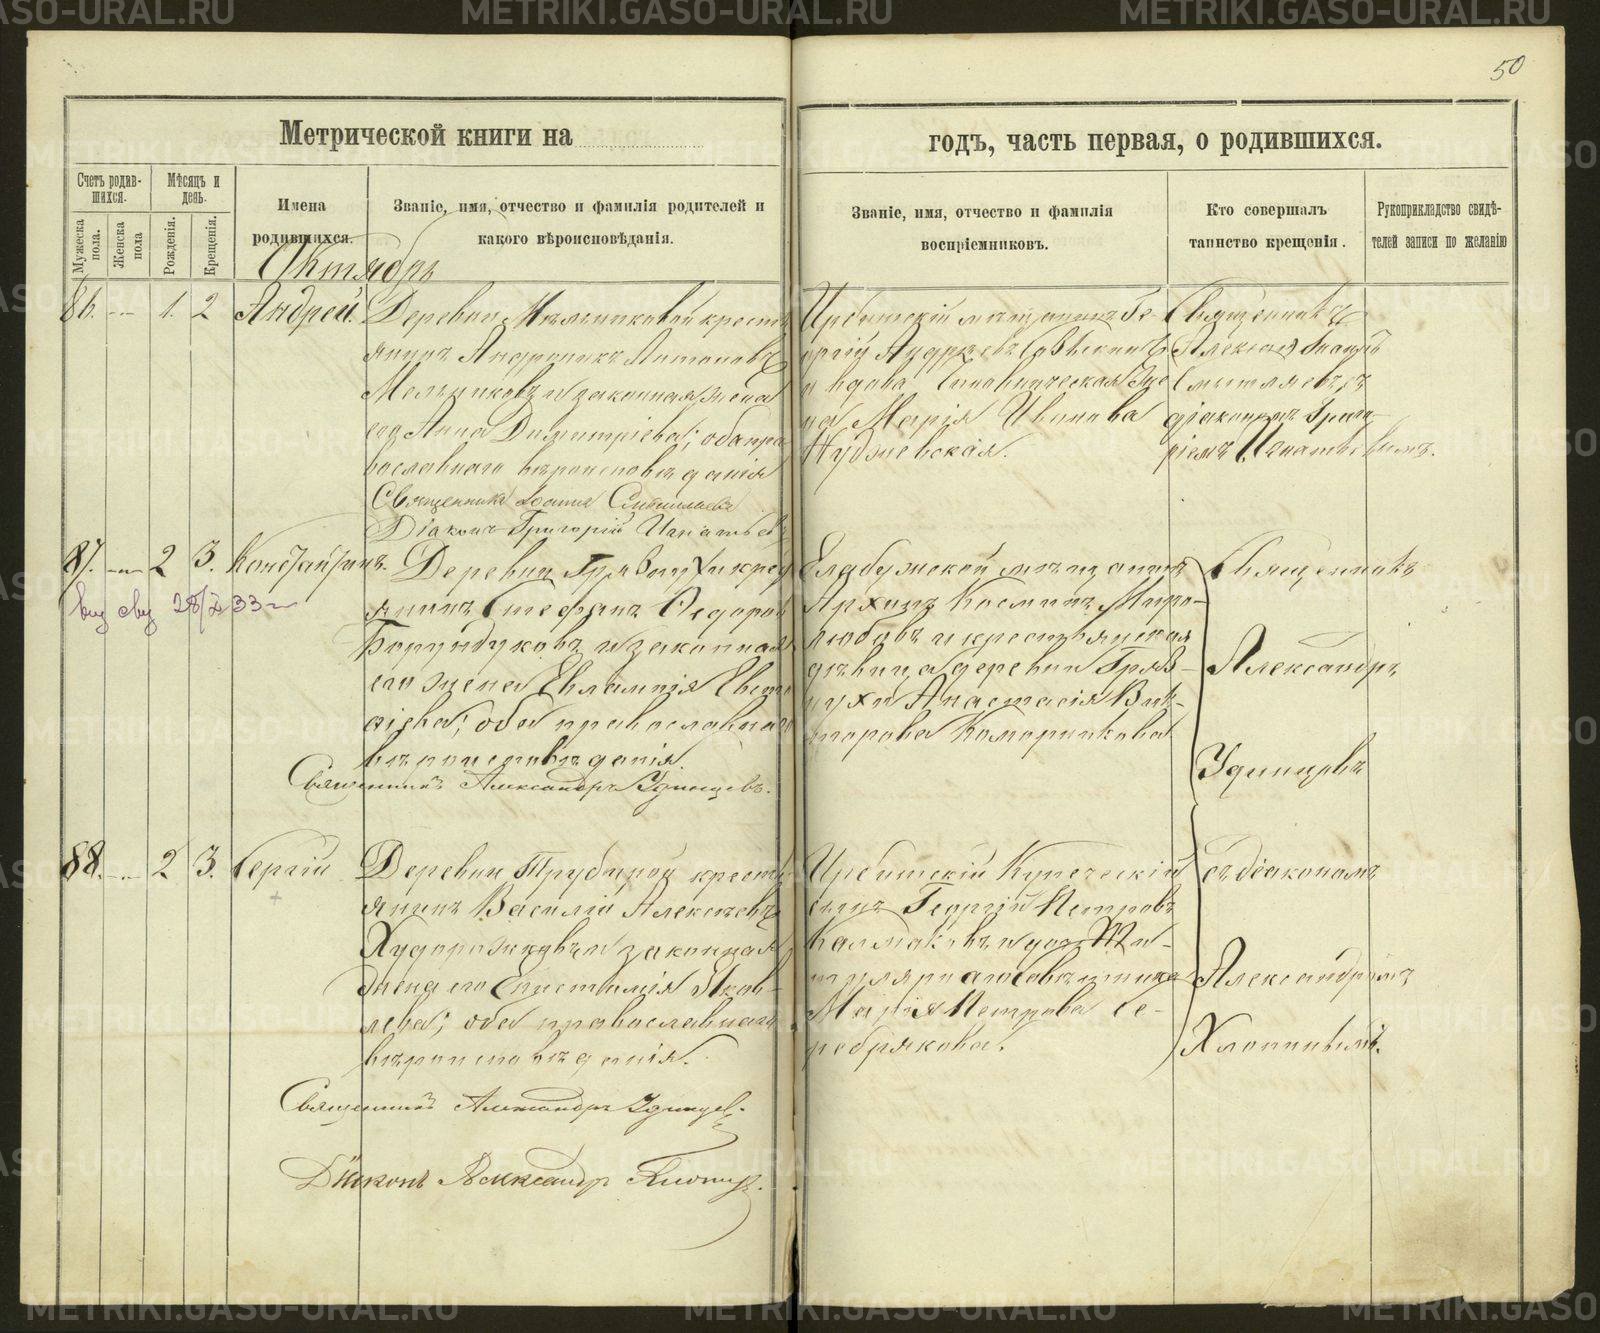 50
Метрической книги на
годъ, часть первая, о родившихся.
Счетъ родив-
шихся.
Мѣсяцъ и
день.
Мужеска
пола.
Женска
пола
Рожденія.
Крещенія.
Имена
родившихся.
Званіе, имя, отчество и фамилія родителей и
какого вѣроисповѣданія.
Званіе, имя, отчество и фамилія
воспріемниковъ.
Кто совершалъ
таинство крещенія.
Рукоприкладство свидѣ-
телей записи по желанію
Октябрь
86. 1. 2 Андрей.
Деревни Мельниковой кресть
янинъ Андроникъ Антоновъ
Мельниковъ и законная жена
его Анна Димитріева; оба пра
вославнаго вѣроисповѣданія
Священникъ Смышляевъ
Діаконъ Григорій Игнатьевъ
Ирбитскій мѣщанинъ Ге-
оргій Андреевъ
и вдова Чиновническая же
на Марія Иванова
Священникъ
Смышляевъ съ
діакономъ Григо-
ріемъ Игнатьевымъ.
87. 2 3. Константинъ.
Деревни Грязнухи крес
янинъ Стефанъ Ѳедоровъ
Борундуковъ и законная
его жена Евлампія
оба православнаго
вѣроисповѣданія.
Священникъ Александръ Удинцевъ.
28/2 33 г
Елабужской мѣщанинъ
Архипъ Косминъ Миро-
любовъ и крестьянская
дѣвица деревни Гряз-
нухи Анастасія Вик-
торова Комарникова
Священникъ
Александръ
Удинцевъ
88. 2 3. Сергій
Деревни Трубиной кресть
янинъ Василій Алексѣевъ
Худорожковъ и законная
жена его Епистимія Яков-
лева; оба православнаго
вѣроисповѣданія.
Священникъ Александръ Удинцев.
Діаконъ Александръ
Ирбитскій Купеческій
сынъ Георгій Петровъ
Калмаковъ и дочь Ти-
тулярнаго Совѣтника
Марія Петрова Се-
ребрякова.
съ діакономъ
Александромъ
METRIKI.GASO-URAL.RU